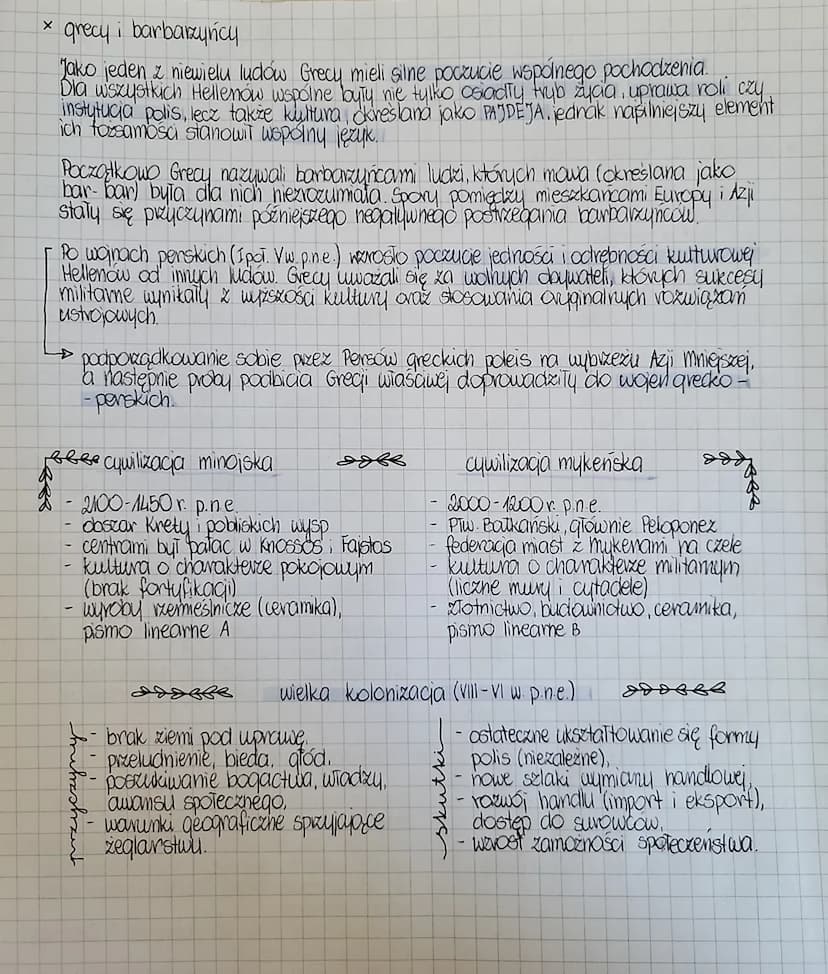 × grecy i barbarzyńcy
Jako jeden z niewielu ludów Grecy mieli silne poczucie wspólnego pochodzenia.
Dla wszystkich Hellenów wspólne były nie tylko osiadły tryb życia, uprawa roli czy
instytucja polis, lecz także kultura, określana jako PAJDEJA, jednak najsilniejszy element
ich tożsamości stanowił wspólny język.
Początkowo Grecy nazywali barbarzyńcami ludzi, których mowa (określana jako
bar-bar) była dla nich niezrozumiała. Spory pomiędzy mieszkańcami Europy i Azji
stały się przyczynami późniejszego negatywnego postrzegania barbarzyńców.
Po wojnach perskich (I poł. V w. p.n.e.) wzrosło poczucie jedności i odrębności kulturowej
Hellenów od innych ludów. Grecy uważali się za wolnych obywateli, których sukcesy
militarne wynikały z wyższości kultury oraz stosowania oryginalnych rozwiązań
ustrojowych.
podporządkowanie sobie przez Persów greckich poleis na wybrzeżu Azji Mniejszej,
a następnie próby podbicia Grecji właściwej doprowadziły do wojen grecko-
-perskich.
cywilizacja minojska cywilizacja mykeńska
- 2100-1450 r. p.n.e. - 2000-1200 r. p.n.e.
- obszar Krety i pobliskich wysp - Płw. Bałkański, głównie Peloponez
- centrami był pałac w Knossos i Fajstos - federacja miast z Mykenami na czele
- kultura o charakterze pokojowym - kultura o charakterze militarnym
(brak fortyfikacji) (liczne mury i cytadele)
- wyroby rzemieślnicze (ceramika), - złotnictwo, budownictwo, ceramika,
pismo linearne A pismo linearne B
wielka kolonizacja (VIII-VI w. p.n.e.)
- brak ziemi pod uprawę,
- przeludnienie, bieda, głód,
- poszukiwanie bogactwa, władzy,
awansu społecznego,
- warunki geograficzne sprzyjające
żeglarstwu.
skutki
- ostateczne ukształtowanie się formy
polis (niezależne),
- nowe szlaki wymiany handlowej,
- rozwój handlu (import i eksport),
dostęp do surowców,
- wzrost zamożności społeczeństwa.